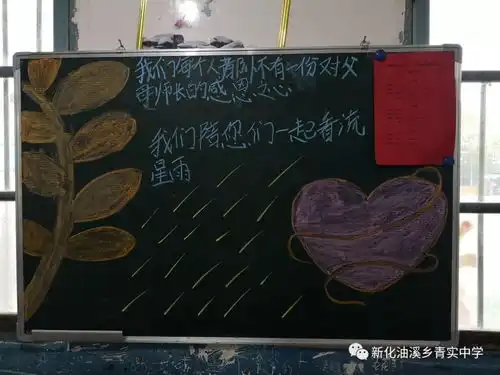 我们每个人都怀有一份对父
母师长的感恩之心
我们陪您们一起看流
星雨
新化油溪乡青实中学